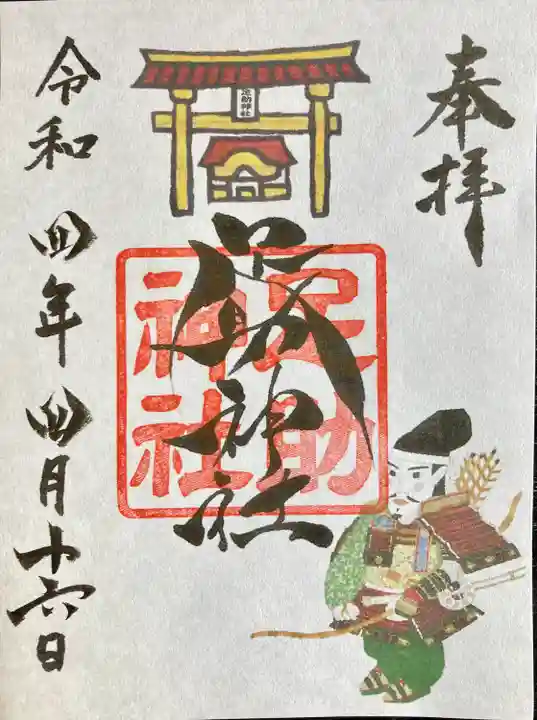 奉拝
足助神社
足助
神社
足助神社
令和四年四月十六日